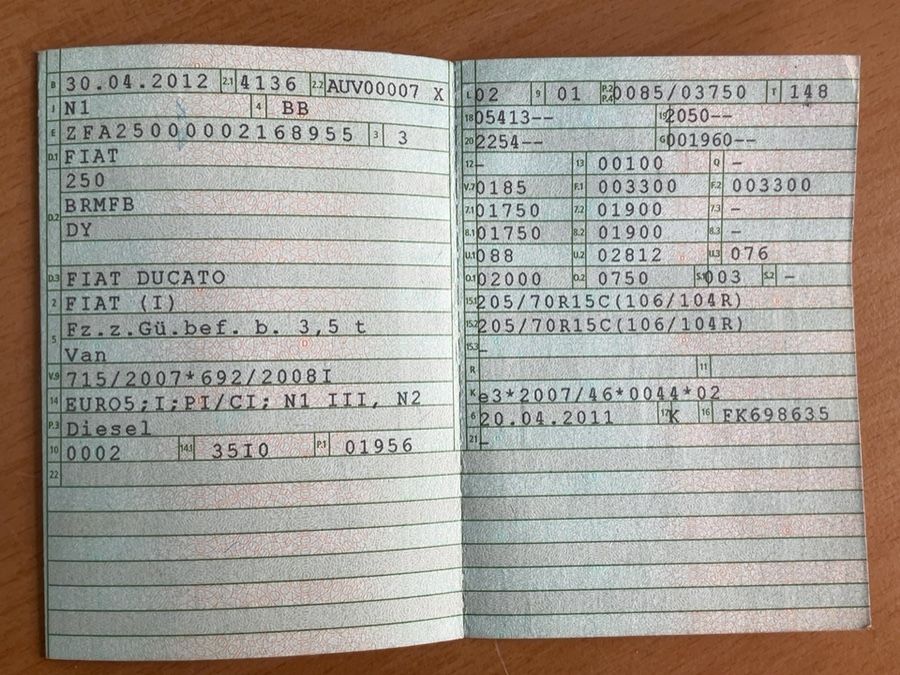 B 30.04.2012 2.1 4136 2.2 AUV00007 X
J N1 4 BB
E ZFA25000002168955 3 3
D.1 FIAT
250
D.2 BRMFB
DY
D.3 FIAT DUCATO
2 FIAT (I)
5 Fz.z.Gü.bef. b. 3,5 t
Van
V.9 715/2007*692/2008I
14 EURO5;I;PI/CI; N1 III, N2
P.3 Diesel
10 0002 14.1 35I0 P.1 01956
22
L 02 9 01 P.2 P.4 0085/03750 T 148
18 05413-- 19 2050--
20 2254-- G 001960--
12 - 13 00100 Q -
V.7 0185 F.1 003300 F.2 003300
7.1 01750 7.2 01900 7.3 -
8.1 01750 8.2 01900 8.3 -
U.1 088 U.2 02812 U.3 076
O.1 02000 O.2 0750 S.1 003 S.2 -
15.1 205/70R15C(106/104R)
15.2 205/70R15C(106/104R)
15.3 -
R 11
K e3*2007/46*0044*02
6 20.04.2011 17 K 16 FK698635
21 -